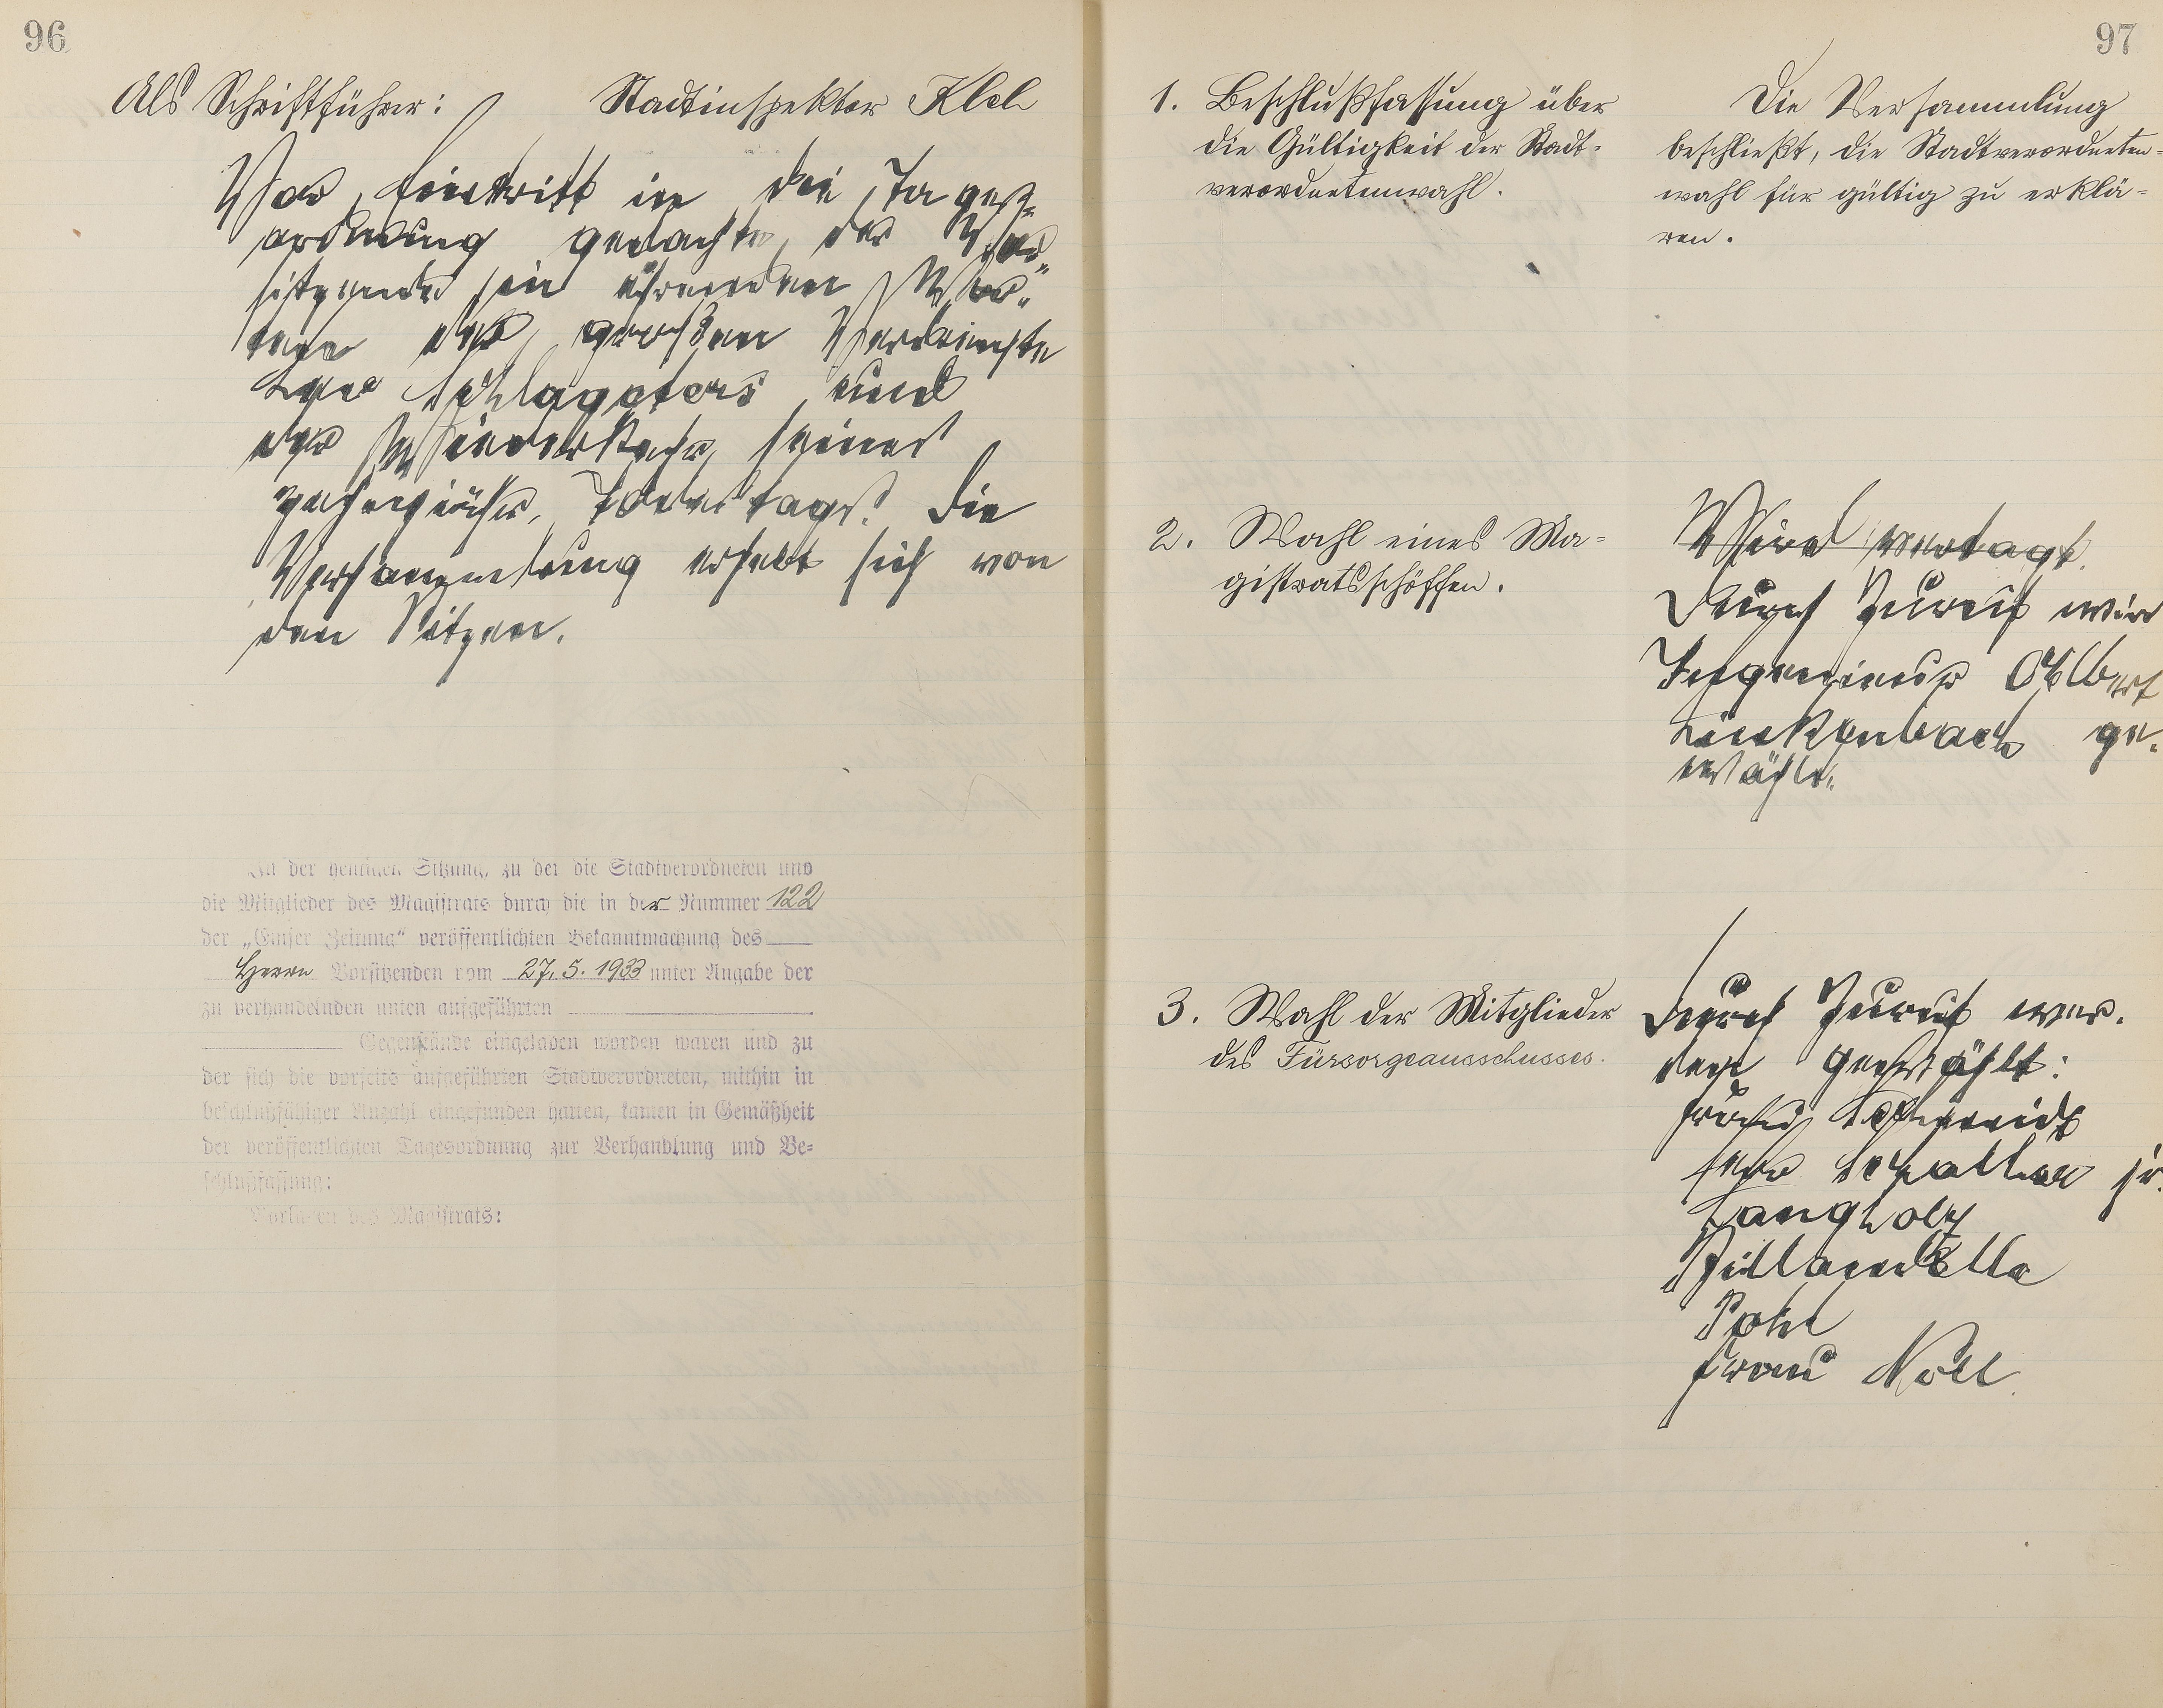 96
Als Schriftführer: Stadtinspektor Klel
Vor Eintritt in die Tages-
ordnung gedachte der Vor-
sitzende in ehrenden Wor-
ten der großen Verdienste
Leo Schlageters und
der Wiederkehr seines
zehnjähr. Todestags. Die
Versammlung erhebt sich von
den Sitzen.
In der heutigen Sitzung, zu der die Stadtverordneten und
die Mitglieder des Magistrats durch die in der Nummer 122
der „Emser Zeitung" veröffentlichten Bekanntmachung des
Herrn Vorsitzenden vom 27.5.1933 unter Angabe der
zu verhandelnden unten aufgeführten
Gegenstände eingeladen worden waren und zu
der sich die vorseits aufgeführten Stadtverordneten, mithin in
beschlußfähiger Anzahl eingefunden hatten, kamen in Gemäßheit
der veröffentlichten Tagesordnung zur Verhandlung und Be-
schlußfassung:
Vorlagen des Magistrats:
97
1. Beschlußfassung über
die Gültigkeit der Stadt-
verordnetenwahl.
Die Versammlung
beschließt, die Stadtverordneten-
wahl für gültig zu erklä-
ren.
2. Wahl eines Ma-
gistratsschöffen.
Wird vertagt.
Durch Zuruf wird
Ingenieur Albert
Linkenbach ge-
wählt.
3. Wahl der Mitglieder
des Fürsorgeausschusses.
Durch Zuruf wer-
den gewählt:
Schmidt
Schaller jr.
Langholz
Pohl
Frau Noll